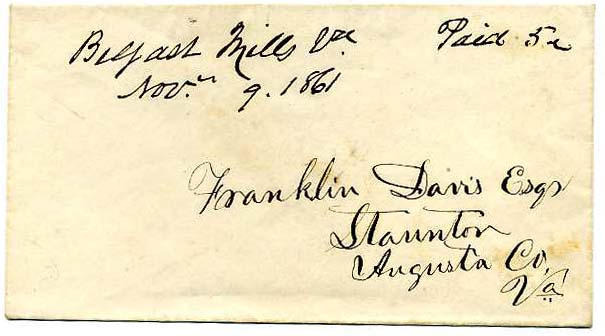 Belfast Mills Va Paid 5c
Nov. 9. 1861
Franklin Davis Esqr
Staunton
Augusta Co,
Va